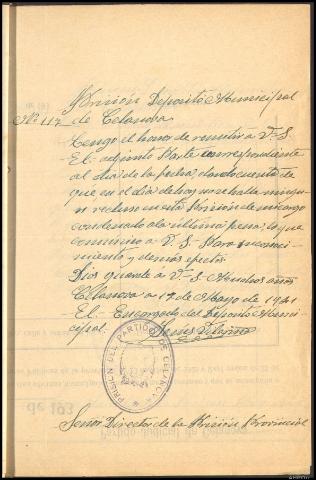 Prisión Depósito Municipal
Nº 117 de Celanova
Tengo el honor de remitir a V.-S.
El adjunto Parte correspondiente
al dia de la fecha, dando cuenta de
que en el dia de hoy no se halla ningun
recluso en esta Prisión de mi cargo
condenado a la ultima pena, lo que
comunico a V. S. Para su conoci-
miento y demás efectos.
Dios guarde a V.-S. Muchos años
Celanova a 17 de Mayo de 1941
El Encargado del Deposito Muni-
cipal.
PRISION DEL PARTIDO DE CELANOVA
Señor Director de la Prisión Provincial
de 193